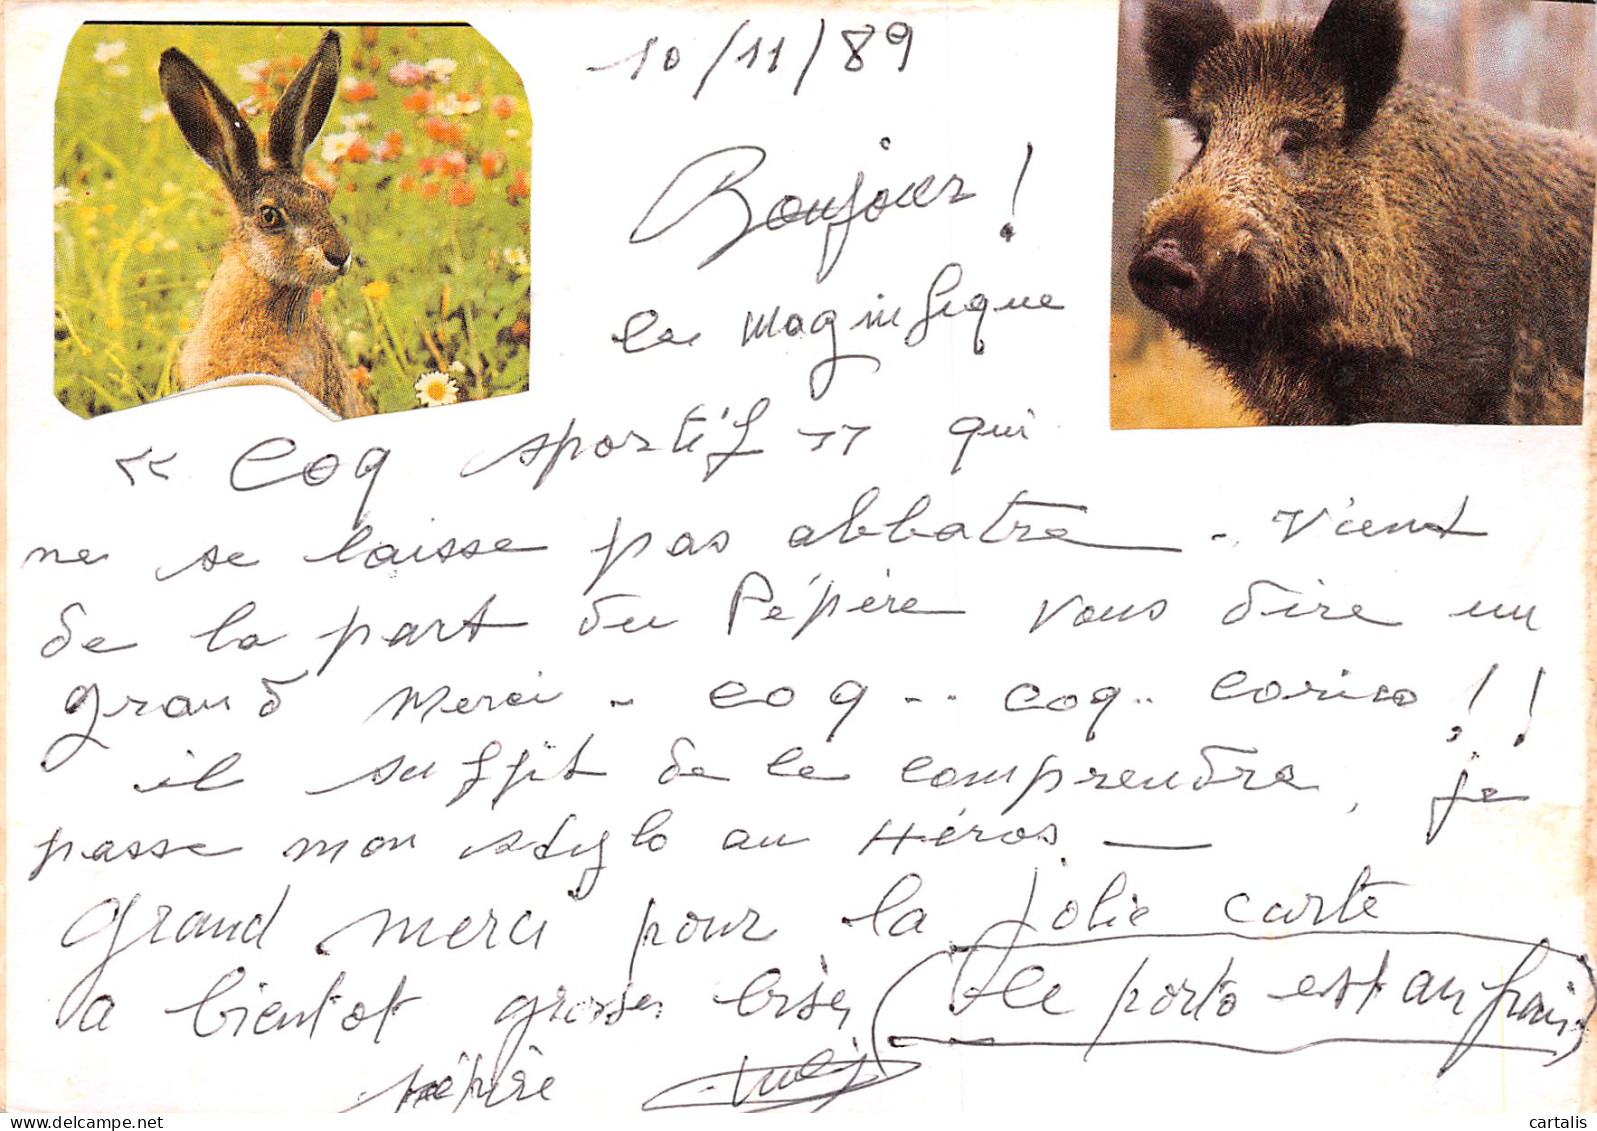 10/11/89
Bonjour !
le magnifique
« Coq sportif » qui
ne se laisse pas abbatre - Vient
de la part du Pépère vous dire un
grand Merci - coq .. coq .. corico ! !
il suffit de le comprendre, je
passe mon stylo au Héros —
Grand merci pour la jolie carte
a bientot grosses bises (le porto est au frais)
pépère
cartalis